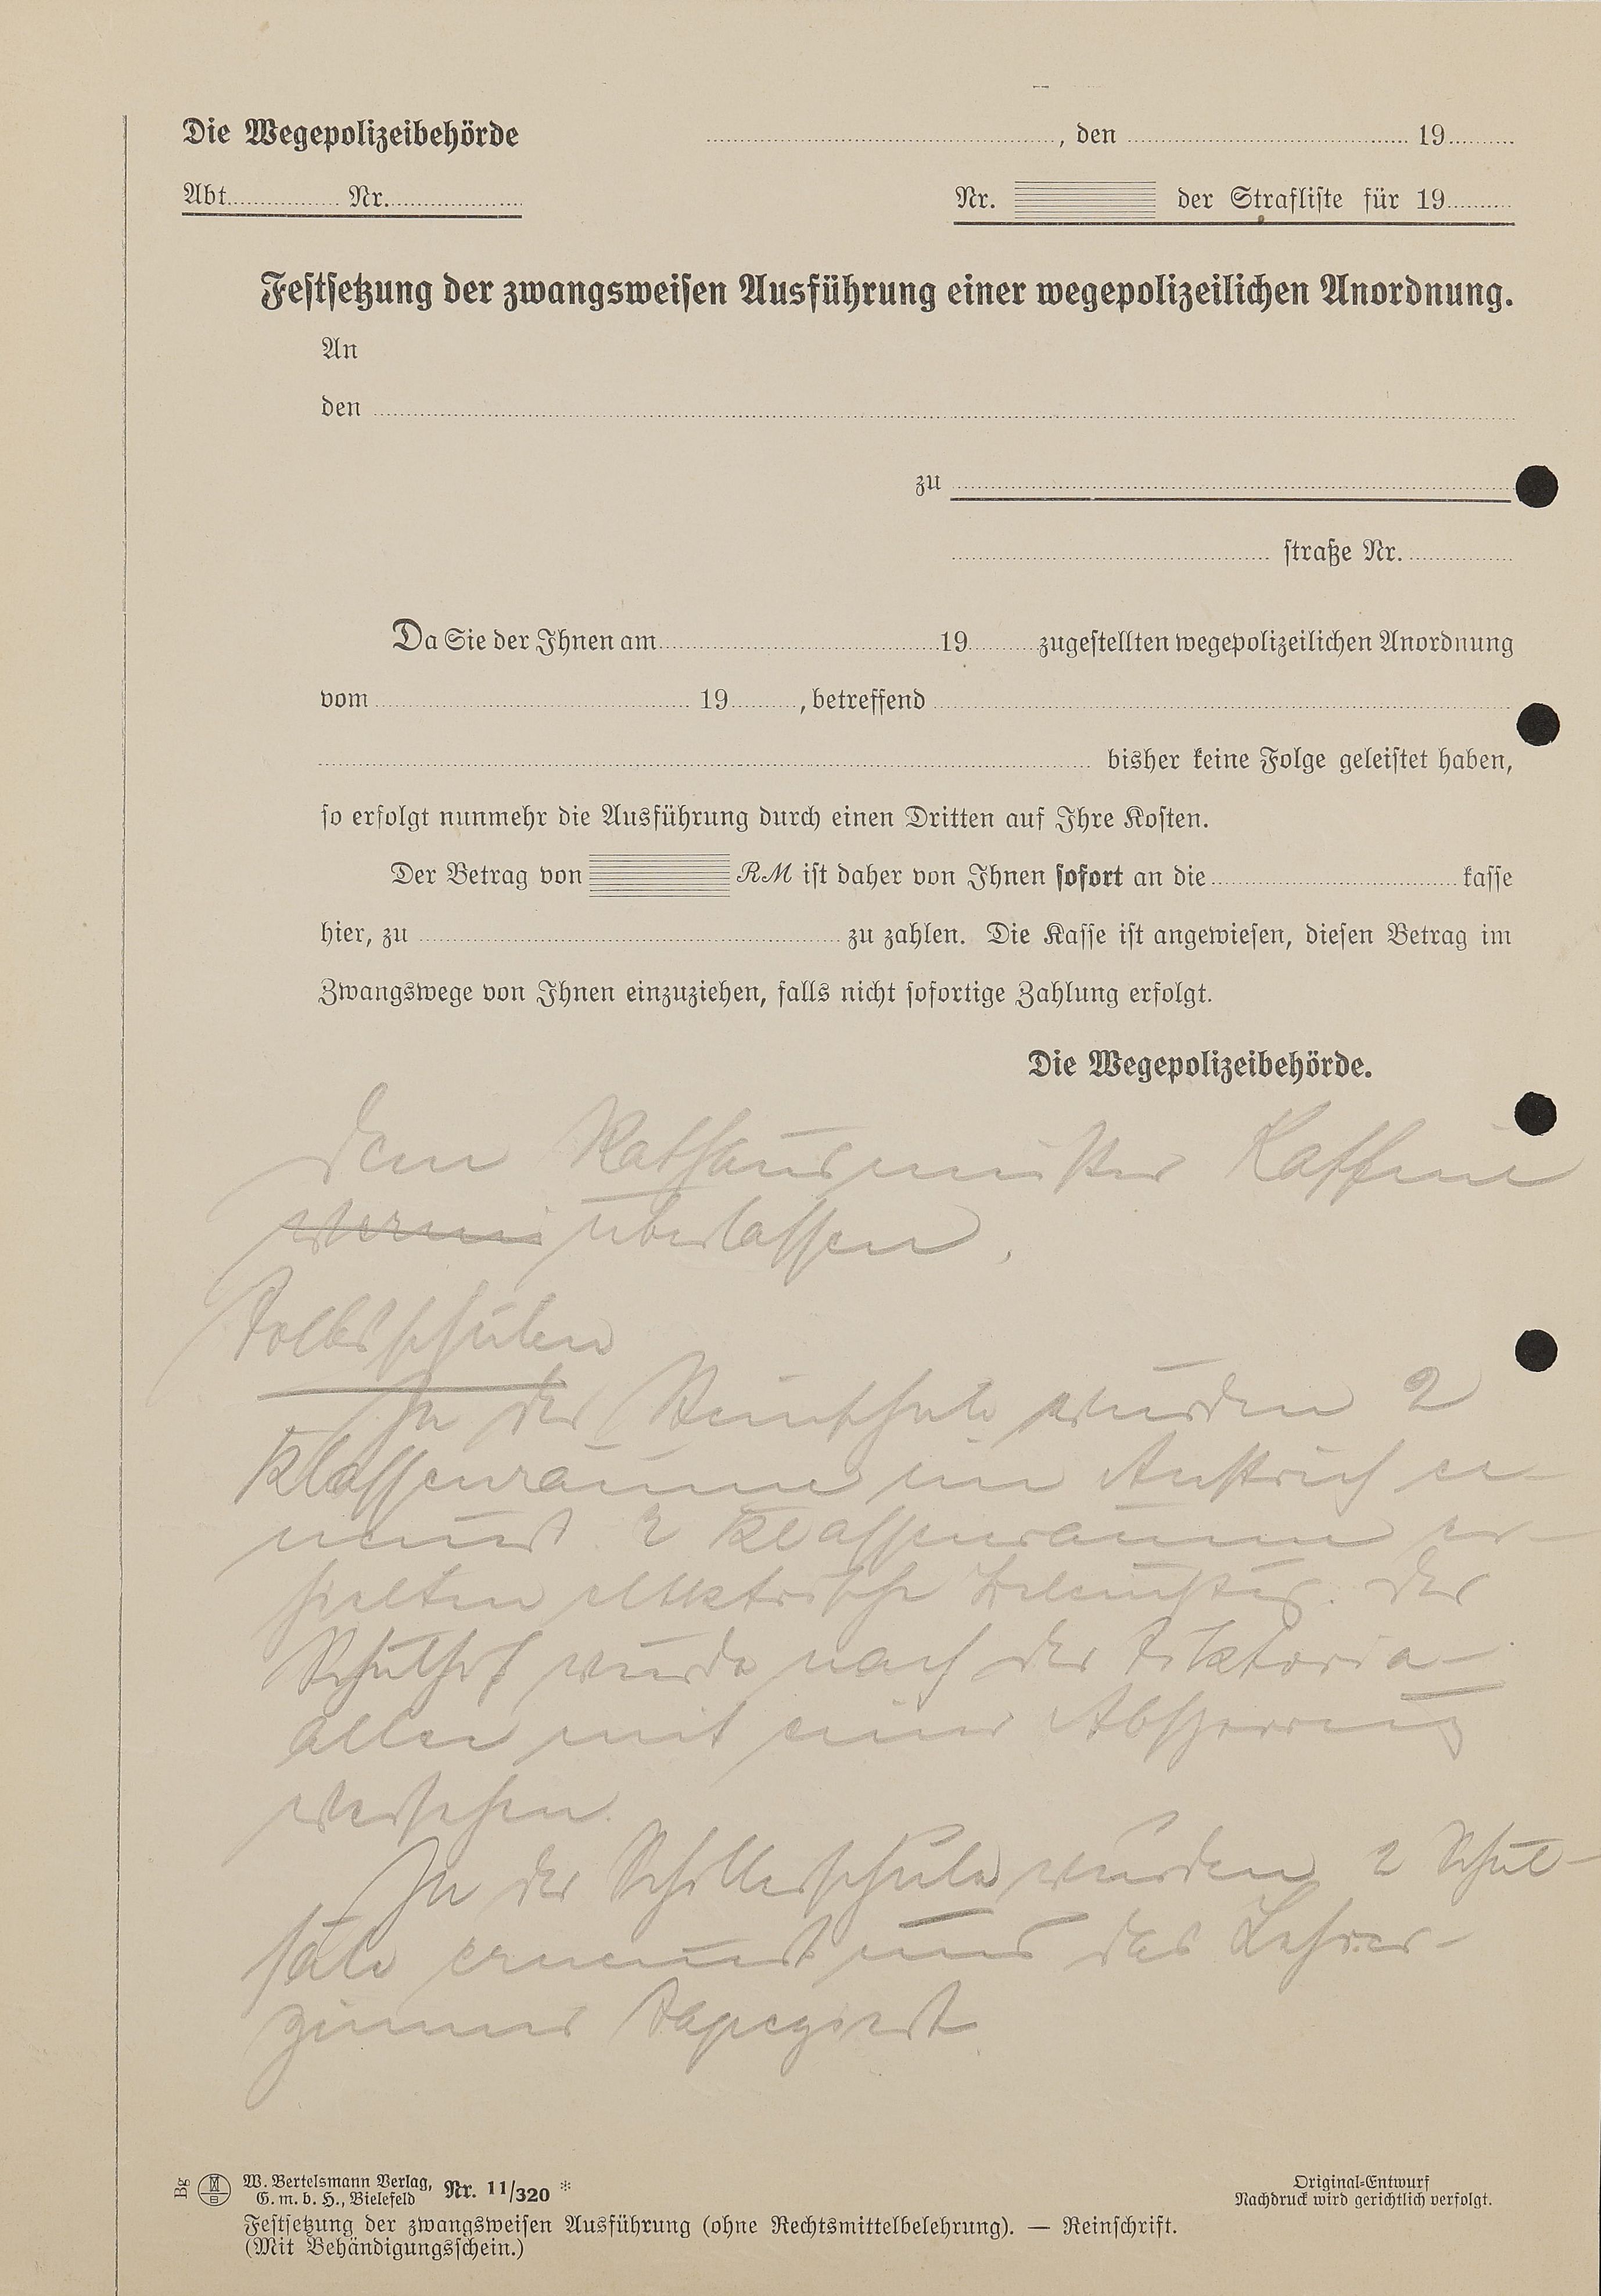 Die Wegepolizeibehörde
, den 19
Abt. Nr.
Nr. der Strafliste für 19
Festsetzung der zwangsweisen Ausführung einer wegepolizeilichen Anordnung.
An
den
zu
straße Nr.
Da Sie der Ihnen am 19 zugestellten wegepolizeilichen Anordnung
vom 19 , betreffend
bisher keine Folge geleistet haben,
so erfolgt nunmehr die Ausführung durch einen Dritten auf Ihre Kosten.
Der Betrag von RM ist daher von Ihnen sofort an die kasse
hier, zu zu zahlen. Die Kasse ist angewiesen, diesen Betrag im
Zwangswege von Ihnen einzuziehen, falls nicht sofortige Zahlung erfolgt.
Die Wegepolizeibehörde.
Dem Rathausmeister
überlassen.
Volksschulen
In der wurden 2
Klassenräume im Anstrich er-
neuert 2 Klassenräume er-
hielten elektrische Beleuchtung. Der
Schulhof wurde nach der Viktoria-
allee mit einer Absperrung
versehen.
In der Schillerschule wurden 2 Schul-
säle erneuert und das Lehrer-
zimmer tapeziert
Bg
W. Bertelsmann Verlag,
G. m. b. H., Bielefeld
Nr. 11/320 *
Original-Entwurf
Nachdruck wird gerichtlich verfolgt.
Festsetzung der zwangsweisen Ausführung (ohne Rechtsmittelbelehrung). — Reinschrift.
(Mit Behändigungsschein.)